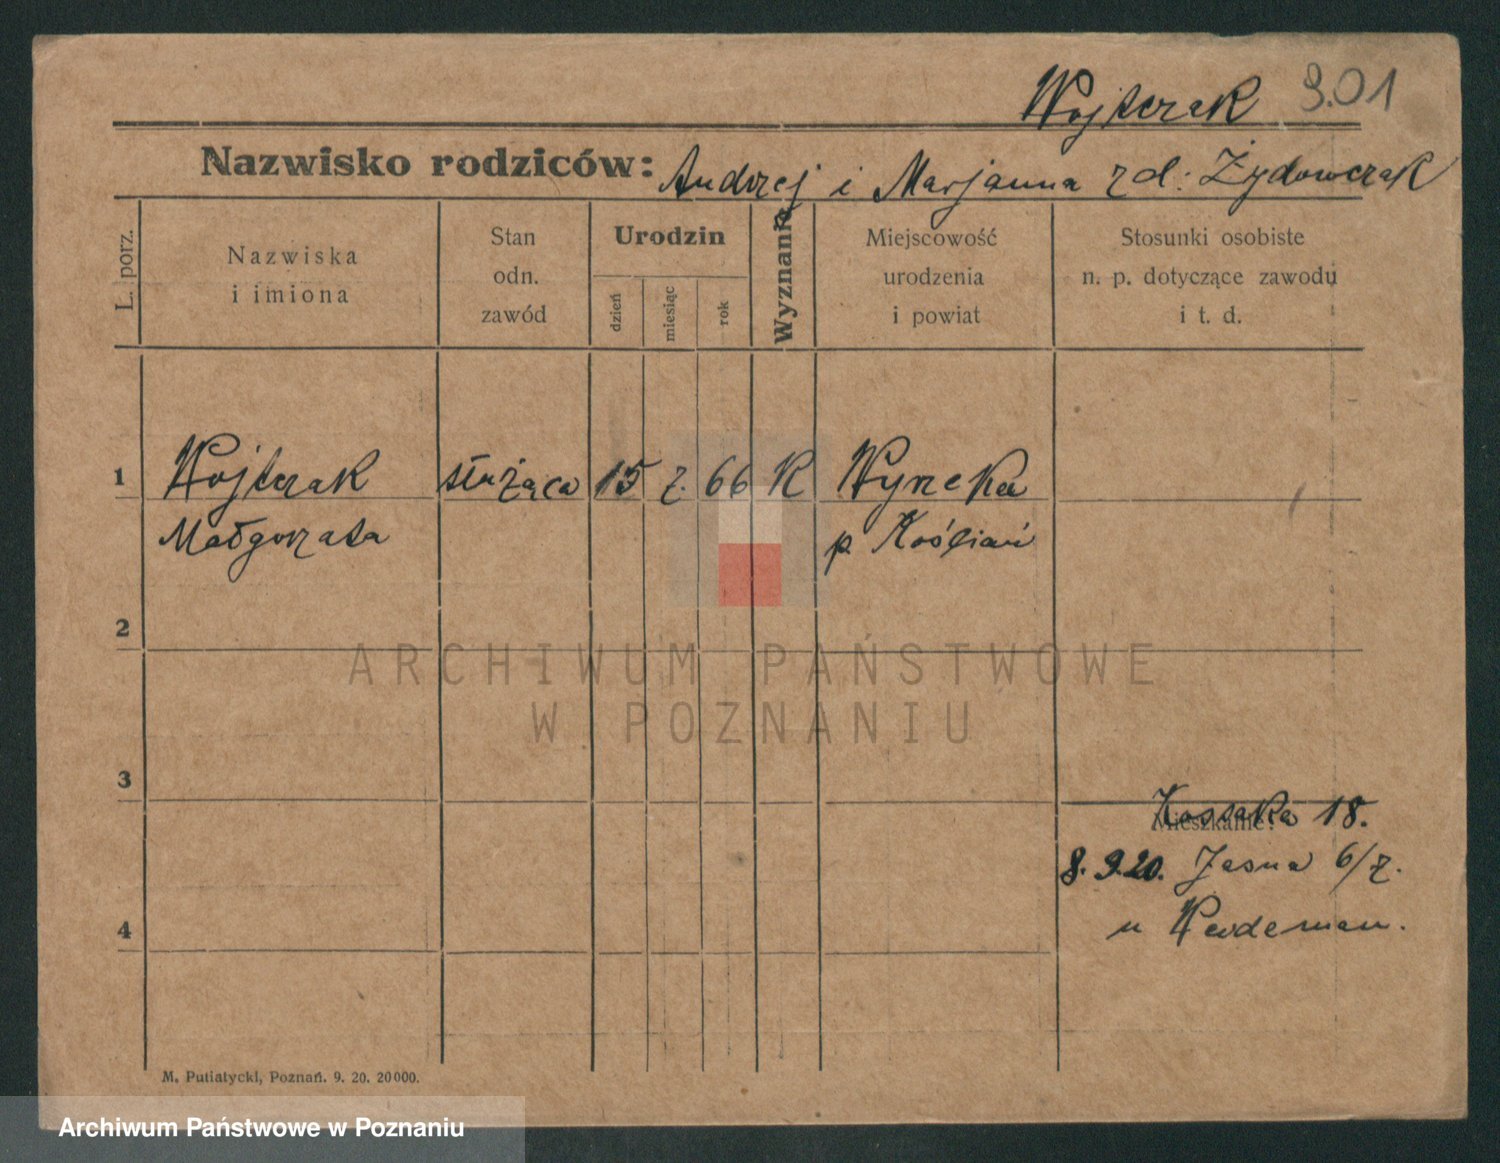 Wojterak 9.01
Nazwisko rodziców: Andrzej i Marjanna zd: Żydowczak
L. porz.
Nazwiska
i imiona
Stan
odn.
zawód
Urodzin
dzień
miesiąc
rok
Wyznanie
Miejscowość
urodzenia
i powiat
Stosunki osobiste
n. p. dotyczące zawodu
i t. d.
1 Wojterak służąca 15 7. 66 K
Małgorzata p. Kościań
2
ARCHIWUM PAŃSTWOWE
W POZNANIU
3
Mieszkanie: Kossaka 18.
8. 9. 20. Jasna 6/7.
4 u
M. Putiatycki, Poznań. 9. 20. 20000.
Archiwum Państwowe w Poznaniu